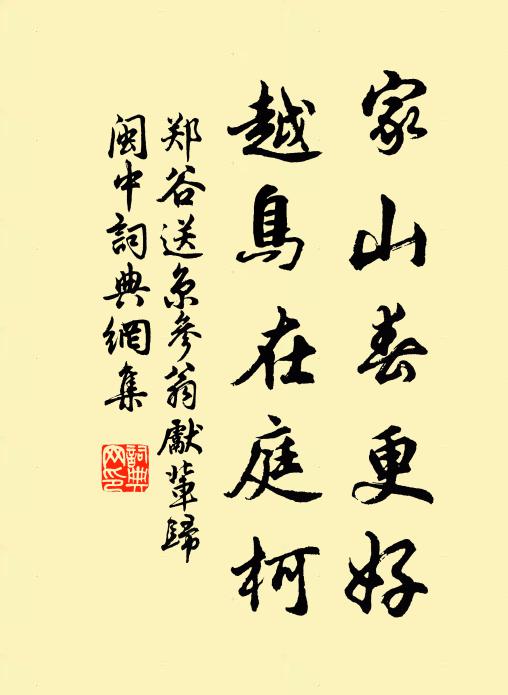 家山春更好
越鳥在庭柯
郑谷送京參翁獻輩歸
閩中詞典網集
詞典
网印